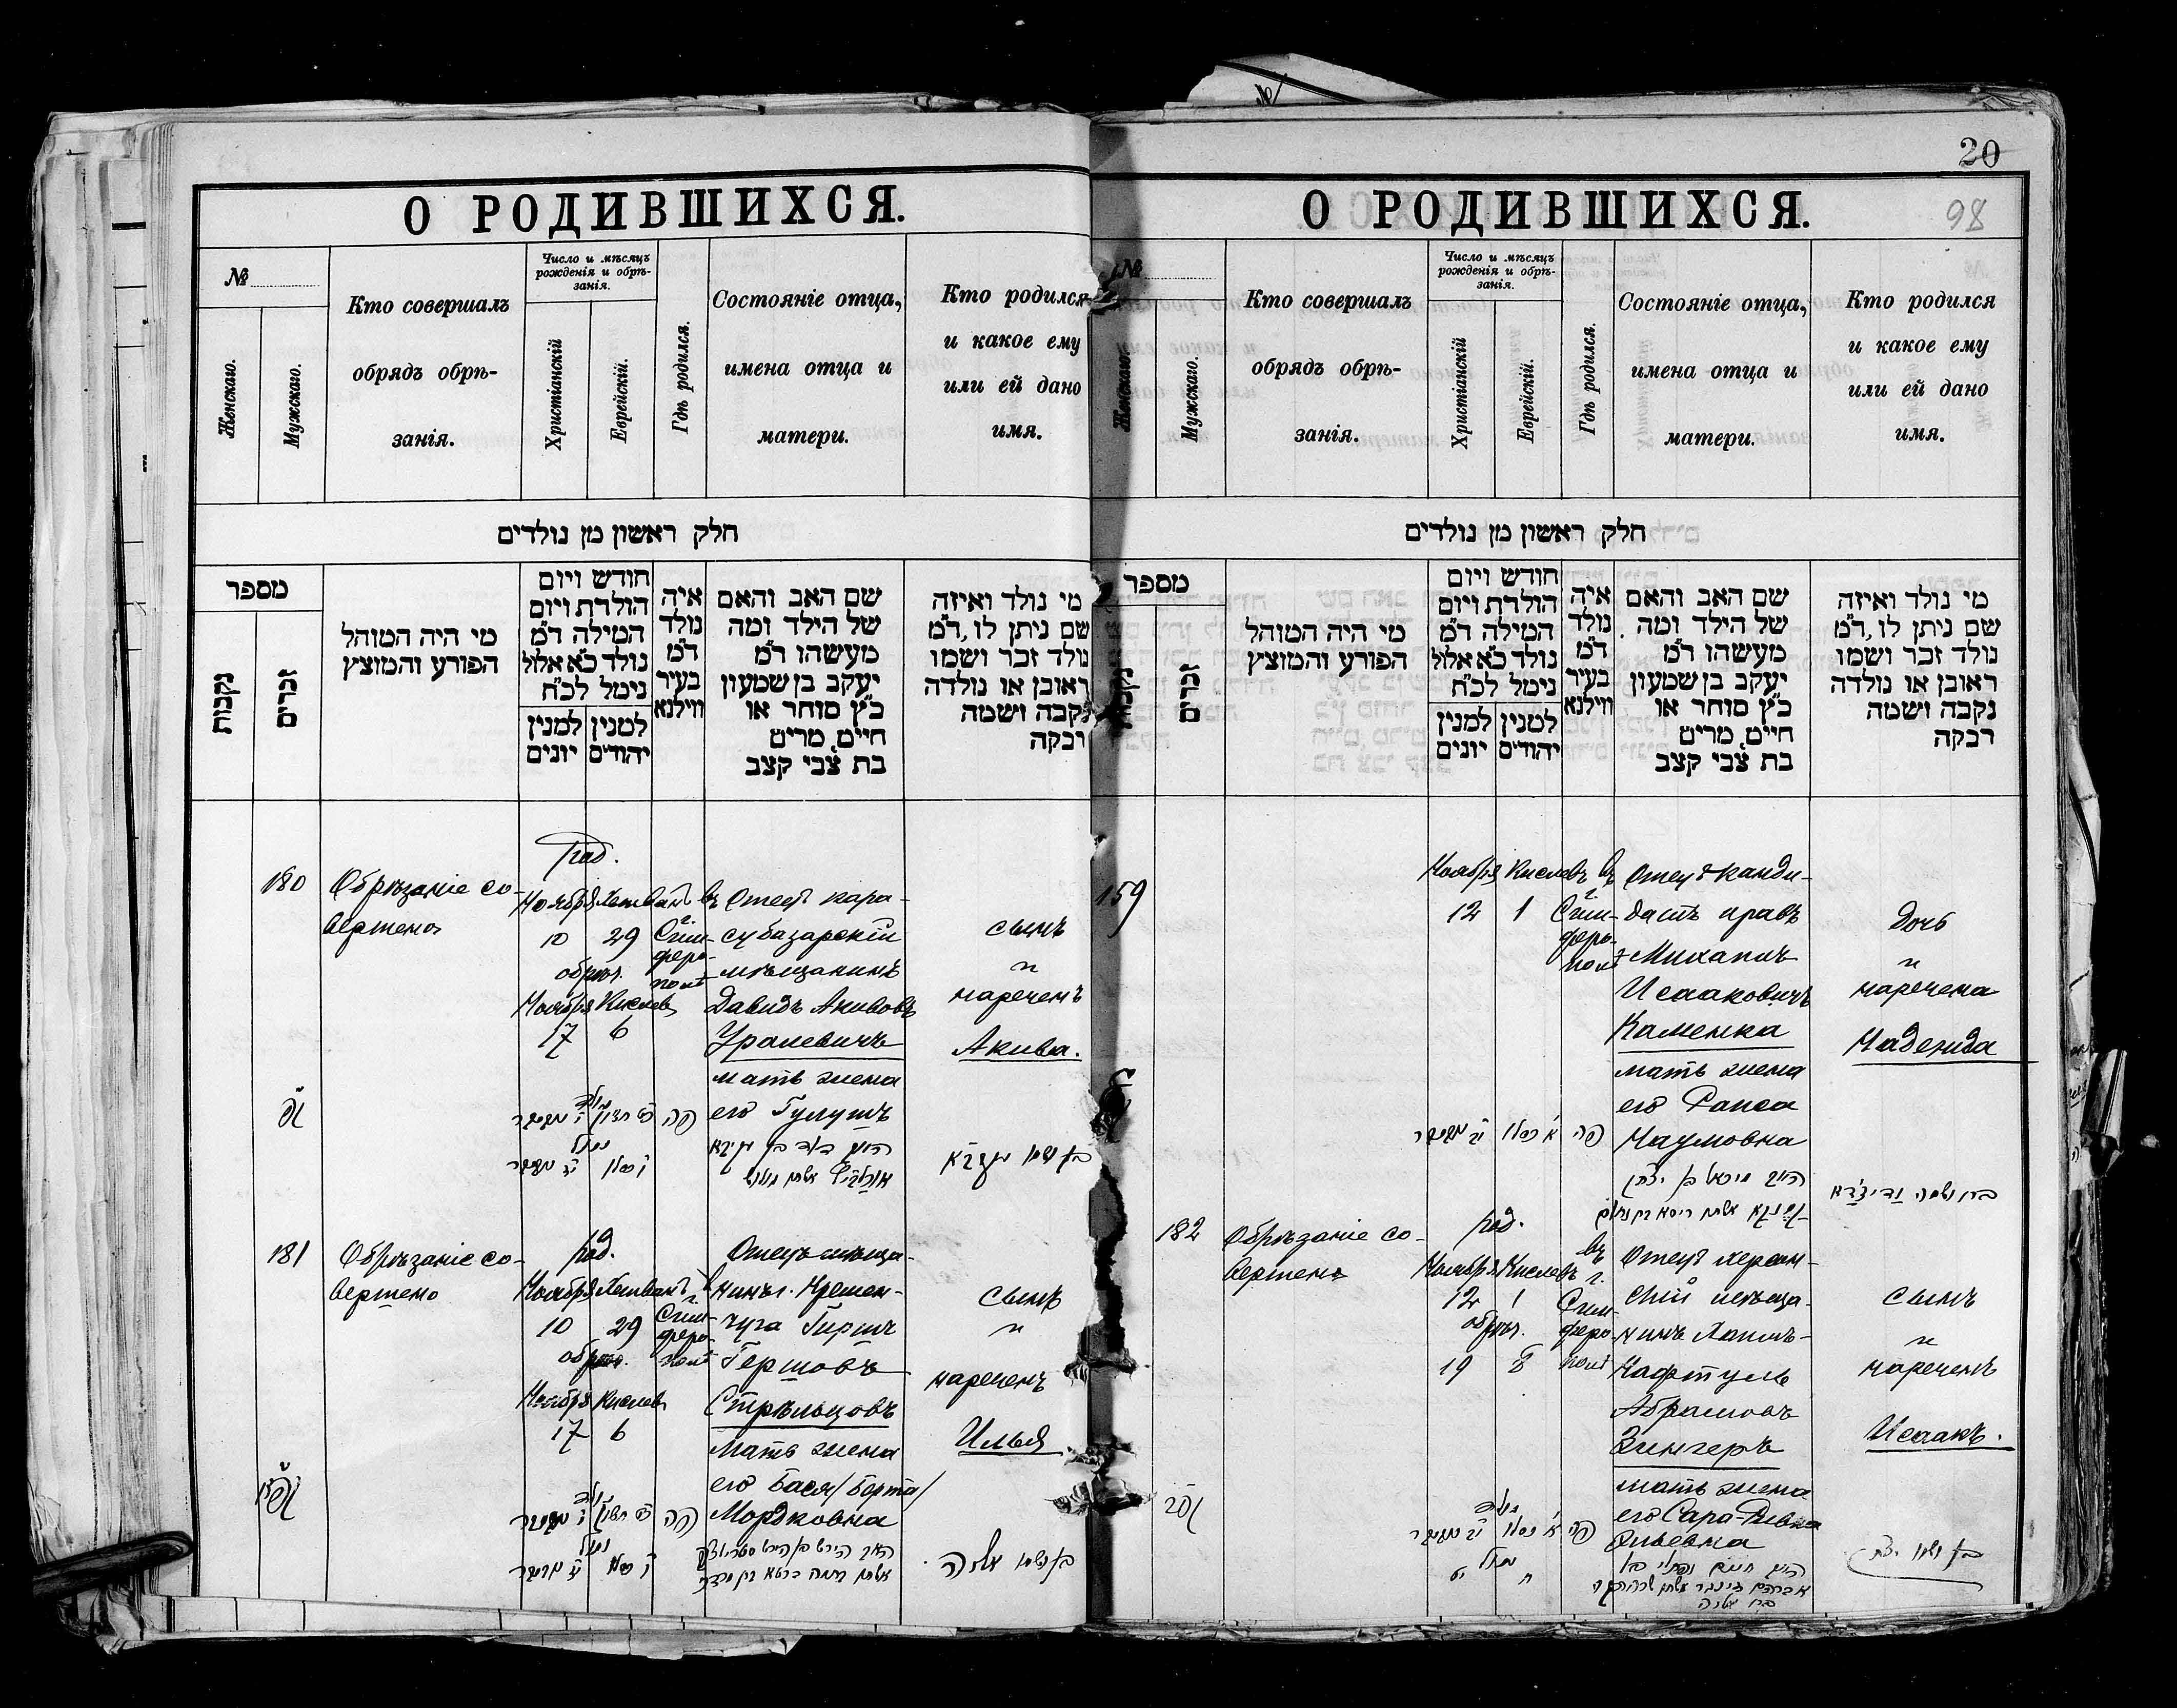 20
98
О РОДИВШИХСЯ.
№
Женскаго.
Мужскаго.
Кто совершалъ
обрядъ обрѣ-
занія.
Число и мѣсяцъ
рожденія и обрѣ-
занія.
Христіанскій
Еврейскій.
Гдѣ родился.
Состояніе отца,
имена отца и
матери.
Кто родился
и какое ему
или ей дано
имя.
חלק ראשון מן נולדים
מספר
נקבות
זכרים
מי היה המוהל
הפורע והמוצץ
חודש ויום
הולדת ויום
המילה ד״מ
נולד כ״א אלול
נימל לכ״ח
למנין יונים
למנין יהודים
איה
נולד
ד״מ
בעיר
ווילנא
שם האב והאם
של הילד ומה
מעשהו ד״מ
יעקב בן שמעון
כ״ץ סוחר או
חייט, מרים
בת צבי קצב
מי נולד ואיזה
שם ניתן לו, ד״מ
נולד זכר ושמו
ראובן או נולדה
נקבה ושמה
רבקה
180
Обрѣзаніе со-
вершено
род.
Ноября Хешванъ
10 29
обрѣз.
Ноября Кислевъ
17 6
въ
г.
Сим-
феро-
полѣ
Отецъ кара-
субазарскій
мѣщанинъ
Давидъ Акивовъ
Уралевичъ
мать жена
его Гулушъ
сынъ
и
нареченъ
Акива.
נולד
פה
נימול
181
Обрѣзаніе со-
вершено
род.
Ноября Хешванъ
10 29
обрѣз.
Ноября Кислевъ
17 6
въ
г.
Сим-
феро-
полѣ
Отецъ мѣща-
нинъ г. Кремен-
чуга Гиршъ
Гершовъ
Стрѣльцовъ
мать жена
его Бася /Берта/
Мордковна
сынъ
и
нареченъ
Илья
נולד
פה
נימול
בן ושמו אליה
О РОДИВШИХСЯ.
№
Женскаго.
Мужскаго.
Кто совершалъ
обрядъ обрѣ-
занія.
Число и мѣсяцъ
рожденія и обрѣ-
занія.
Христіанскій
Еврейскій.
Гдѣ родился.
Состояніе отца,
имена отца и
матери.
Кто родился
и какое ему
или ей дано
имя.
חלק ראשון מן נולדים
מספר
נקבות
זכרים
מי היה המוהל
הפורע והמוצץ
חודש ויום
הולדת ויום
המילה ד״מ
נולד כ״א אלול
נימל לכ״ח
למנין יונים
למנין יהודים
איה
נולד
ד״מ
בעיר
ווילנא
שם האב והאם
של הילד ומה
מעשהו ד״מ
יעקב בן שמעון
כ״ץ סוחר או
חייט, מרים
בת צבי קצב
מי נולד ואיזה
שם ניתן לו, ד״מ
נולד זכר ושמו
ראובן או נולדה
נקבה ושמה
רבקה
159
Ноября Кислевъ
12 1
въ
г.
Сим-
феро-
полѣ
Отецъ канди-
датъ правъ
Михаилъ
Исааковичъ
Каменка
мать жена
его Раиса
Наумовна
дочь
и
наречена
Надежда
פה
182
Обрѣзаніе со-
вершено
род.
Ноября Кислевъ
12 1
обрѣз.
19 8
въ
г.
Сим-
феро-
полѣ
Отецъ херсон-
скій мѣща-
нинъ Хаимъ-
Нафтуль
Абрамовъ
Зингеръ
мать жена
его Сара-Ривка
Эльевна
сынъ
и
нареченъ
Исаакъ.
נולד
פה
בן ושמו יצחק